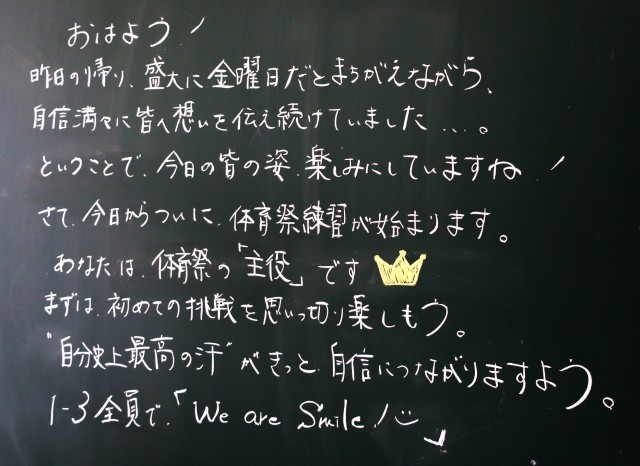 おはよう！
昨日の帰り、盛大に金曜日だとまちがえながら、
自信満々に皆へ想いを伝え続けていました…。
ということで、今日の皆の姿、楽しみにしていますね！
さて、今日からついに、体育祭練習が始まります。
あなたは、体育祭の「主役」です
まずは、初めての挑戦を思いっ切り楽しもう。
"自分史上最高の汗"がきっと、自信につながりますよう。
1-3全員で、「We are Smile!」